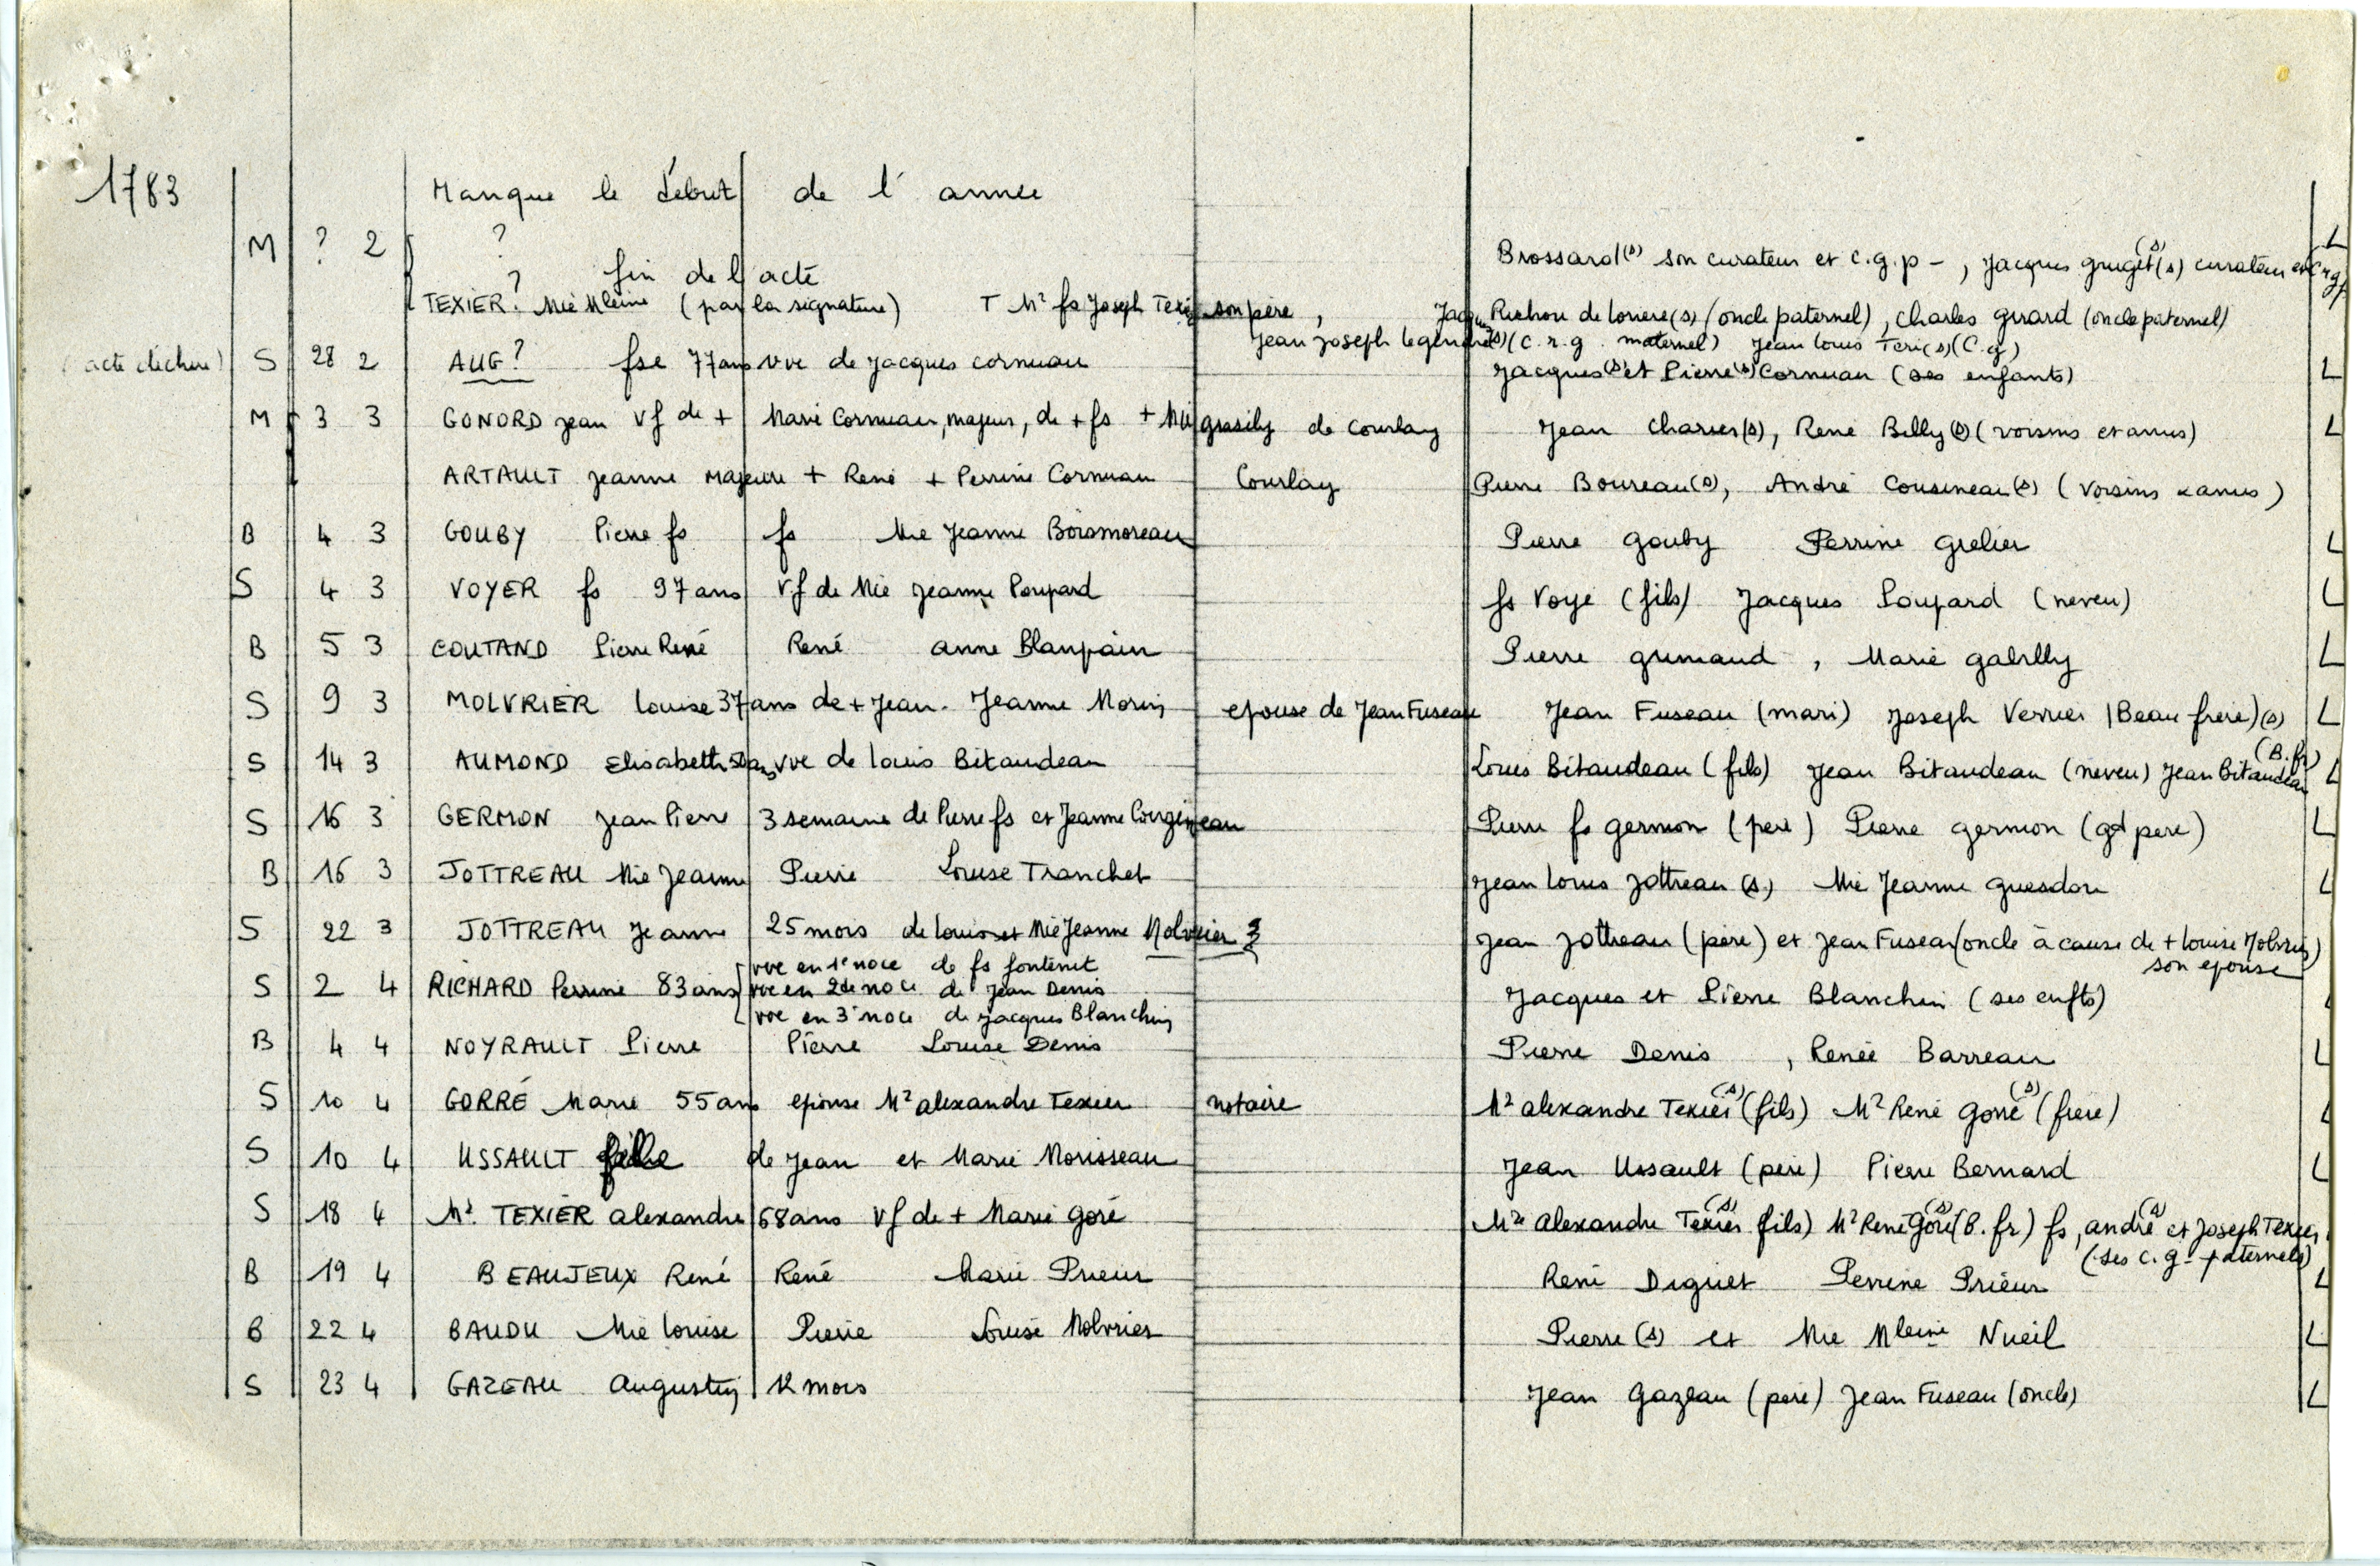 1783 Manque le début de l'année
M ? 2 ?
Brossard(s) son curateur et c.g.p - , Jacques gruget(s) curateur et
? fin de l'acte
TEXIER? Mie Mleine (par la signature) T Mr fs Joseph Texier son père , Jacques Richou de (s) (oncle paternel), Charles girard (oncle paternel)
Jean Joseph legendre(s) (c.r.g. maternel) Jean Louis Teri(s) (C.g)
(acte déchiré) S 28 2 AUG? fse 77 ans vve de Jacques cornuau Jacques(s) et Pierre(s) Cornuau (ses enfants) L
M 3 3 GONORD Jean Vf de + Marie Cornuau, majeur, de + fs + Mie grasily de Courlay Jean Charrier(s), René Billy(s) (voisins et amis) L
ARTAULT Jeanne Majeure + René + Perrine Cornuau Courlay Pierre Boureau(s), André Cousineau(s) (voisins & amis)
B 4 3 GOUBY Pierre fs fs Mie Jeanne Boismoreau Pierre Gouby Perrine Grelier L
S 4 3 VOYER fs 97 ans Vf de Mie Jeanne Poupard fs Voye (fils) Jacques Poupard (neveu) L
B 5 3 COUTAND Pierre René René anne Blanpain Pierre grimaud , Marie gabilly L
S 9 3 MOLVRIER Louise 37 ans de + Jean. Jeanne Morin epouse de Jean Fuseau Jean Fuseau (mari) Joseph Verrier (Beau frere)(s) L
S 14 3 AUMOND Elisabeth 50 ans vve de louis Bitaudeau Louis Bitaudeau (fils) Jean Bitaudeau (neveu) Jean Bitaudeau (B. fr) L
S 16 3 GERMON Jean Pierre 3 semaine de Pierre fs et Jeanne Cougineau Pierre fs germon (pere) Pierre germon (gd pere) L
B 16 3 JOTTREAU Mie Jeanne Pierre Louise Tranchet Jean Louis Jottreau (s.) Mie Jeanne guesdon L
S 22 3 JOTTREAU Jeanne 25 mois de louis et Mie Jeanne Molvrier ? Jean Jottreau (père) et Jean Fuseau (oncle à cause de + louise Molvrier)
son epouse
vve en 1e noce de fs fontenit
S 2 4 RICHARD Perrine 83 ans vve en 2de noce de Jean Denis Jacques et Pierre Blanchin (ses enfts)
vve en 3e noce de Jacques Blanchin
B 4 4 NOYRAULT Pierre Pierre Louise Denis Pierre Denis , Renée Barreau L
S 10 4 GORRÉ Marie 55 ans epouse Mr alexandre Texier notaire Mr alexandre Texier(s) (fils) Mr René Gorré(s) (frere) L
S 10 4 USSAULT fille de Jean et Marie Morisseau Jean Ussault (père) Pierre Bernard L
S 18 4 Mr. TEXIER alexandre 68 ans Vf de + Marie goré Mre alexandre Texier(s) fils) Mr René Goré(s) (B. fr) fs, andré(s) et Joseph Texier
(ses c.g - paternels)
B 19 4 BEAUJEUX René René Marie Prieur René Diguet Perrine Prieur L
B 22 4 BAUDU Mie louise Pierre Louise Molvrier Pierre(s) et Mie Mleine Nueil L
S 23 4 GAZEAU Augustin 12 mois Jean Gazeau (père) Jean Fuseau (oncle) L